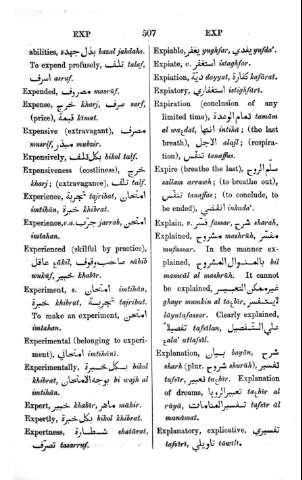 EXP 507 EXP
abilities, بذل جهده bazal jahdaho.
To expend profusely, تلف talaf,
اسرف asraf.
Expended, مصروف maṣrūf.
Expense, خرج kharj, صرف ṣarf,
(price), قيمة ḳimat.
Expensive (extravagant), مصرف
musrif, مبذر mubzir.
Expensively, بكل تلف bikol talf.
Expensiveness (costliness), خرج
kharj; (extravagance), تلف talf.
Experience, تجربة tajribat, امتحان
imtihān, خبرة khibrat.
Experience, v.a. جرب jarrab, امتحن
imtahan.
Experienced (skilful by practice),
عاقل ʿāḳil, صاحب وقوف nāhib
wuḳūf, خبير khabīr.
Experiment, s. امتحان imtihān,
خبرة khibrat, تجربة tajribat.
To make an experiment, امتحن
imtahan.
Experimental (belonging to experi-
ment), امتحاني imtihānī.
Experimentally, بكل خبرة bikol
khibrat, بوجه الامتحان bi wajh al
imtihān.
Expert, خبير khabīr, ماهر māhir.
Expertly, بكل خبرة bikol khibrat.
Expertness, شطارة shatārat,
تصرف tasarruf.
Expiable, يغفر yughfar, يفدي yufdaʾ.
Expiate, v. استغفر istaghfar.
Expiation, دية dayyat, كفارة kafārat.
Expiatory, استغفاري istighfārī.
Expiration (conclusion of any
limited time), تمام المدة tamām
al waḳdat, انتها intihā; (the last
breath), الاجل alajl; (respira-
tion), تنفس tanaffus.
Expire (breathe the last), سلم الروح
sallam arrawh; (to breathe out),
تنفس tanaffus; (to conclude, to
be ended), انقضي inḳadaʾ.
Explain, v. فسر fassar, شرح sharah.
Explained, مشروح mashrūh, مفسر
mufassar. In the manner ex-
plained, بالمنوال المشروح bil
manwāl al mashrūh. It cannot
be explained, غير ممكن التعبير
ghayr mumkin al taʿbīr, لا يتفسر
lā yatafassar. Clearly explained,
تفصيلاً tafsīlan, علي التفصيل
ʿalaʾ attafsīl.
Explanation, بيان bayān, شرح
sharh (plur. شروح shurūh), تفسير
tafsīr, تعبير taʿbīr. Explanation
of dreams, تعبير الرويا taʿbīr al
rūyā, تفسير المنامات tafsīr āl
manāmat.
Explanatory, explicative, تفسيري
tafsīrī, تاويلي tāwīlī.